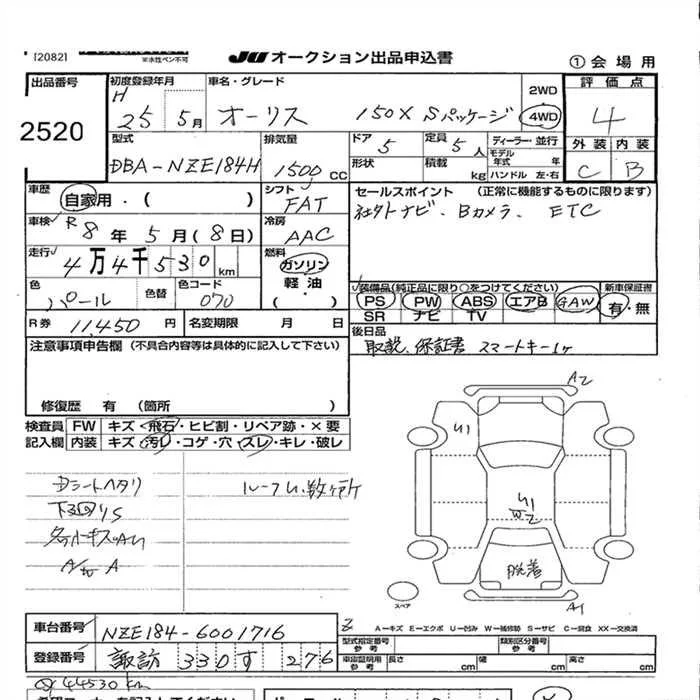 [2082]
※水性ペン不可
JU オークション出品申込書
①会場用
出品番号
2520
初度登録年月
H 25 5月
車名・グレード
オーリス 150X Sパッケージ
2WD
4WD
評価点
4
外装 内装
C B
型式
DBA-NZE184H
排気量
1500 CC
ドア 5
定員 5人
ディーラー・並行
形状
積載 kg
モデル年式 年
ハンドル 左・右
車歴
自家用・( )
シフト
FAT
セールスポイント (正常に機能するものに限ります)
社外ナビ、Bカメラ、ETC
車検
R8年5月(8日)
冷房
AAC
走行
4万4千530km
燃料
ガソリン
軽油・
( )
色
パール
色替
色コード
070
装備品(純正品に限り○をつけてください)
PS PW ABS エアB GAW
SR ナビ TV
新車保証書
有・無
R券 11,450円
名変期限 月 日
後日品
取説、保証書 スマートキー1ヶ
注意事項申告欄 (不具合内容等は具体的に記入して下さい)
修復歴 有 (箇所 )
検査員 FW キズ・飛石・ヒビ割・リペア跡・×要
記入欄 内装 キズ・汚レ・コゲ・穴・スレ・キレ・破レ
Dシートヘタリ
下回りS
ルーフU1数ヶ所
A2
U1
U1
W2
脱着
A1
スペア
A=キズ E=エクボ U=凹み W=補修跡 S=サビ C=腐食 XX=交換済
車台番号
NZE184-6001716
型式指定番号
参考
類別区分番号
参考
登録番号
諏訪 330 す 276
車庫証明用
参考
長さ cm
幅 cm
高さ cm
44530km